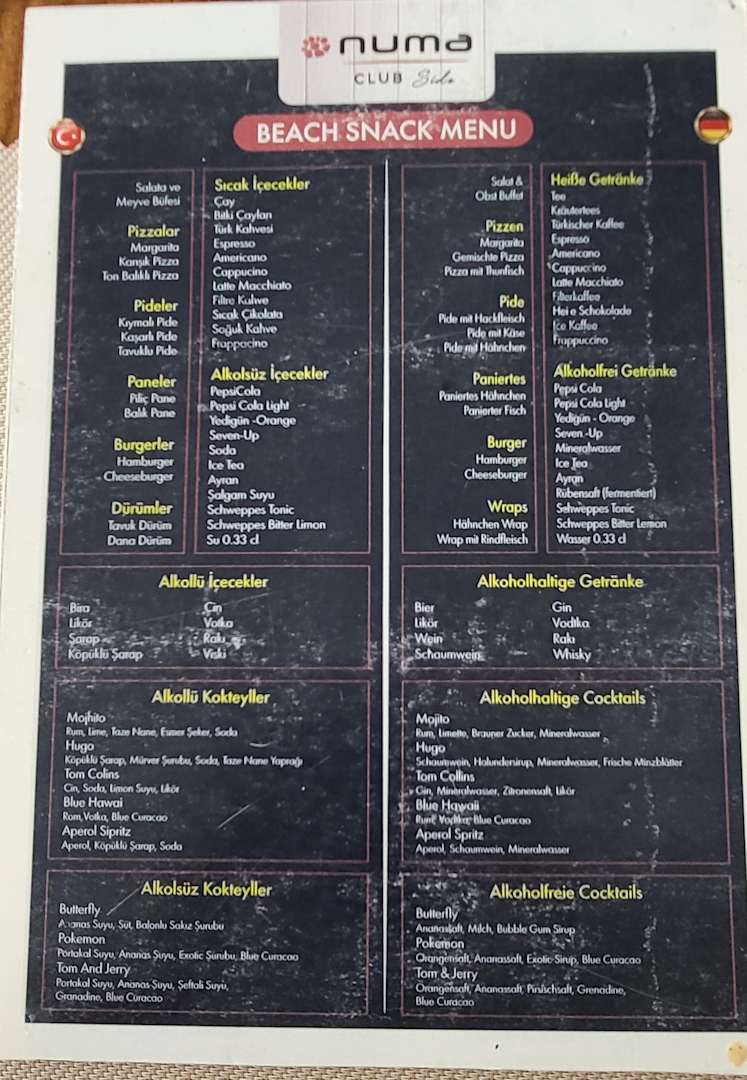 numa
CLUB Side
BEACH SNACK MENU
Salata ve
Meyve Büfesi
Pizzalar
Margarita
Karışık Pizza
Ton Balıklı Pizza
Pideler
Kıymalı Pide
Kaşarlı Pide
Tavuklu Pide
Paneler
Piliç Pane
Balık Pane
Burgerler
Hamburger
Cheeseburger
Dürümler
Tavuk Dürüm
Dana Dürüm
Sıcak İçecekler
Çay
Bitki Çayları
Türk Kahvesi
Espresso
Americano
Cappucino
Latte Macchiato
Filtre Kahve
Sıcak Çikolata
Soğuk Kahve
Frappacino
Alkolsüz İçecekler
PepsiCola
Pepsi Cola Light
Yedigün -Orange
Seven-Up
Soda
Ice Tea
Ayran
Şalgam Suyu
Schweppes Tonic
Schweppes Bitter Limon
Su 0.33 cl
Alkollü İçecekler
Bira
Likör
Şarap
Köpüklü Şarap
Cin
Votka
Rakı
Viski
Alkollü Kokteyller
Mojhito
Rum, Lime, Taze Nane, Esmer Şeker, Soda
Hugo
Köpüklü Şarap, Mürver Şurubu, Soda, Taze Nane Yaprağı
Tom Colins
Cin, Soda, Limon Suyu, Likör
Blue Hawai
Rom, Votka, Blue Curacao
Aperol Sipritz
Aperol, Köpüklü Şarap, Soda
Alkolsüz Kokteyller
Butterfly
Ananas Suyu, Süt, Balonlu Sakız Şurubu
Pokemon
Portakal Suyu, Ananas Suyu, Exotic Şurubu, Blue Curacao
Tom And Jerry
Portakal Suyu, Ananas Suyu, Şeftali Suyu,
Granadine, Blue Curacao
Salat &
Obst Buffet
Pizzen
Margarita
Gemischte Pizza
Pizza mit Thunfisch
Pide
Pide mit Hackfleisch
Pide mit Käse
Pide mit Hähnchen
Paniertes
Paniertes Hähnchen
Panierter Fisch
Burger
Hamburger
Cheeseburger
Wraps
Hähnchen Wrap
Wrap mit Rindfleisch
Heiße Getränke
Tee
Kräutertees
Türkischer Kaffee
Espresso
Americano
Cappuccino
Latte Macchiato
Filterkaffee
Hei e Schokolade
Ice Kaffee
Frappuccino
Alkoholfrei Getränke
Pepsi Cola
Pepsi Cola Light
Yedigün - Orange
Seven -Up
Mineralwasser
Ice Tea
Ayran
Rübensaft (fermentiert)
Schweppes Tonic
Schweppes Bitter Lemon
Wasser 0.33 cl
Alkoholhaltige Getränke
Bier
Likör
Wein
Schaumwein
Gin
Vodtka
Rakı
Whisky
Alkoholhaltige Cocktails
Mojito
Rum, Limette, Brauner Zucker, Mineralwasser
Hugo
Schaumwein, Holundersirup, Mineralwasser, Frische Minzblätter
Tom Collins
Gin, Mineralwasser, Zitronensaft, Likör
Blue Hawaii
Rum, Vodtka, Blue Curacao
Aperol Spritz
Aperol, Schaumwein, Mineralwasser
Alkoholfreie Cocktails
Butterfly
Ananassaft, Milch, Bubble Gum Sirup
Pokemon
Orangensaft, Ananassaft, Exotic Sirup, Blue Curacao
Tom & Jerry
Orangensaft, Ananassaft, Pfirsichsaft, Grenadine,
Blue Curacao